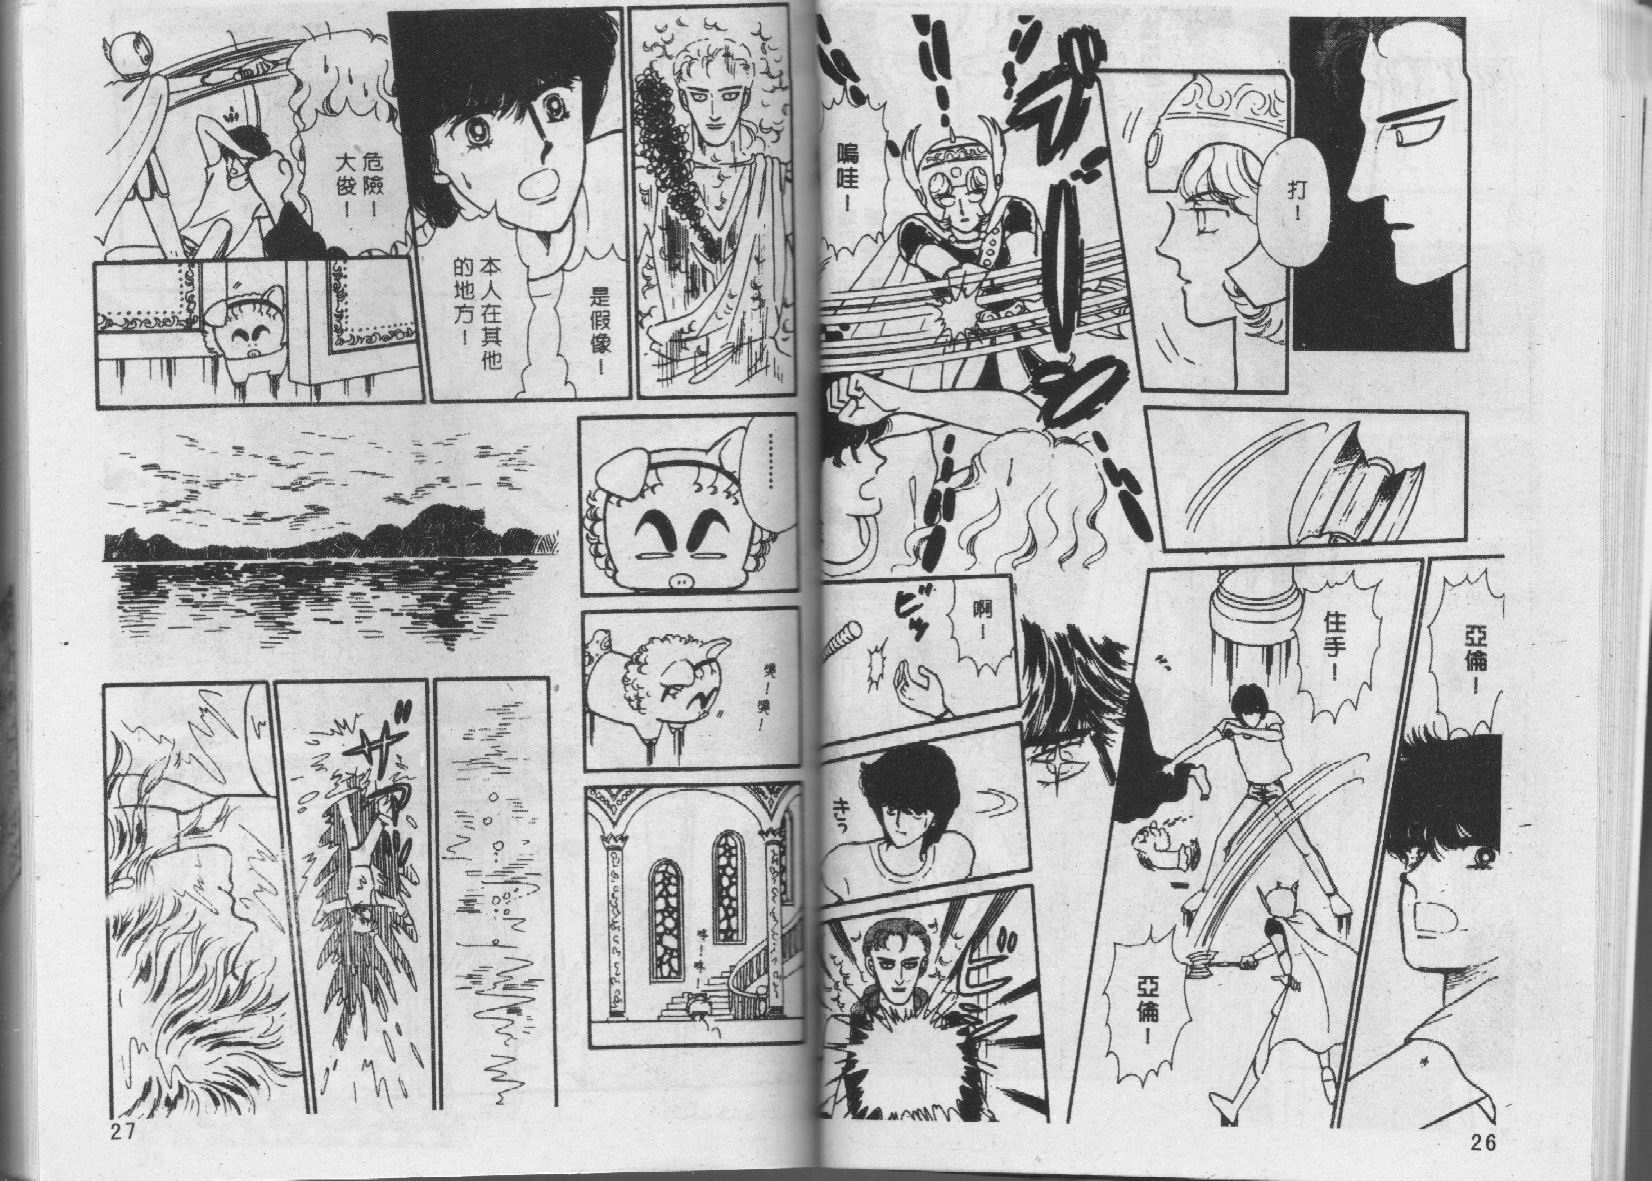 打！
嗚哇！
亞倫！
住手！
亞倫！
啊！
ビッ
きっ
是假像！
本人在其他
的地方！
危險！
大俊！
………
哭！哭！
咪！咪！
26
27